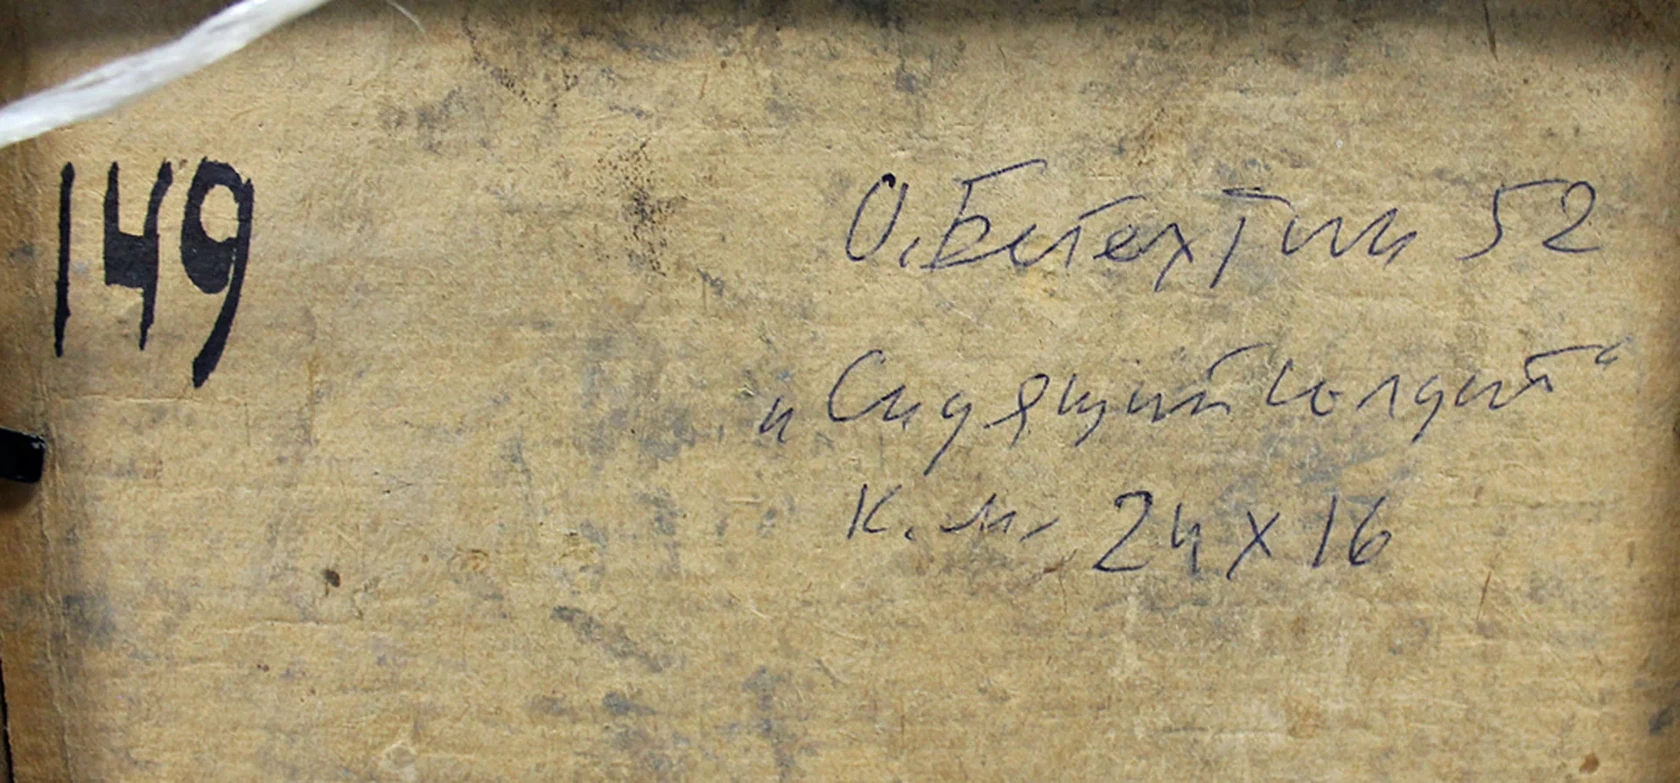 149
О. Бетехтин 52
„Сидящий солдат“
К. м. 24 х 16